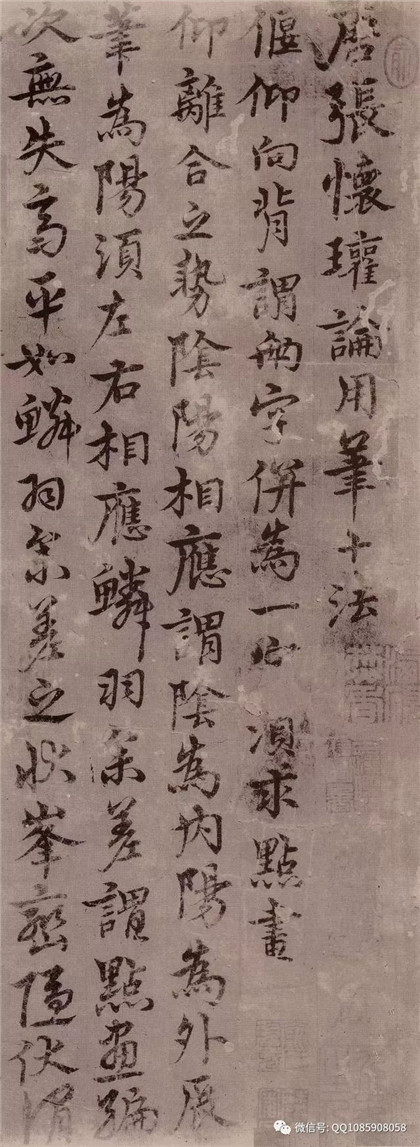 唐張懷瓘論用筆十法
偃仰向背謂兩字併為一須求點畫
仰離合之勢陰陽相應謂陰為內陽為外展
筆為陽須左右相應鱗羽參差謂點畫編
次無失高平如鱗羽參差之狀峯巒隱伏謂
微信号: QQ1085908058